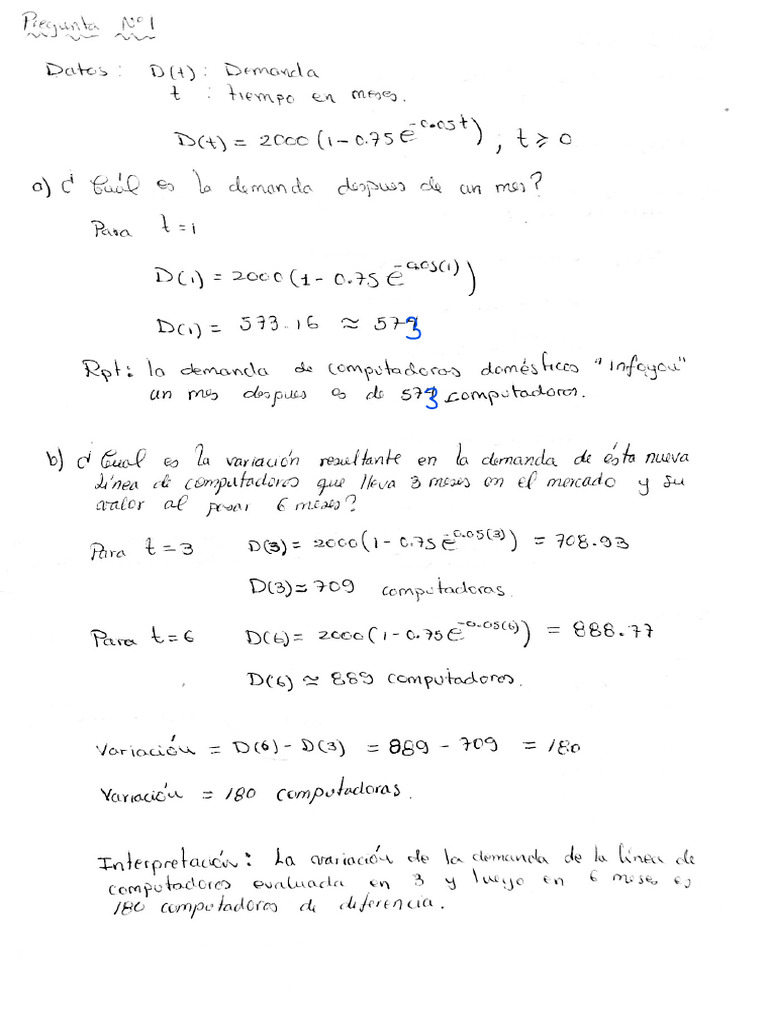 Pregunta Nº1
Datos: D(t): Demanda
t : tiempo en meses.
D(t) = 2000 (1-0.75e^-0.05t), t ≥ 0
a) ¿ Cuál es la demanda despues de un mes?
Para t = 1
D(1) = 2000 (1 - 0.75 e^-0.05(1))
D(1) = 573.16 ≈ 573
Rpt: la demanda de computadoras domésticas "Infoyou"
un mes despues es de 573 computadoras.
b) ¿ Cual es la variación resultante en la demanda de ésta nueva
línea de computadoras que lleva 3 meses en el mercado y su
valor al pasar 6 meses?
Para t = 3 D(3) = 2000 (1 - 0.75e^-0.05(3)) = 708.93
D(3) ≈ 709 computadoras.
Para t = 6 D(6) = 2000 (1 - 0.75e^-0.05(6)) = 888.77
D(6) ≈ 889 computadoras.
Variación = D(6) - D(3) = 889 - 709 = 180
Variación = 180 computadoras.
Interpretación: La variación de la demanda de la línea de
computadoras evaluada en 3 y luego en 6 meses es
180 computadoras de diferencia.